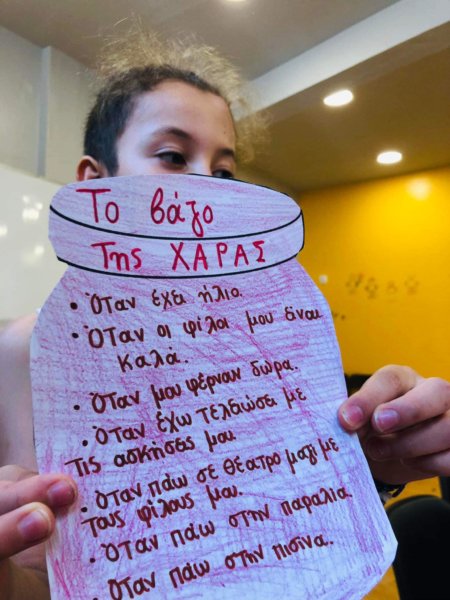 Το βάζο
Της ΧΑΡΑΣ
• Όταν έχει ήλιο.
• Όταν οι φίλοι μου είναι
καλά.
• Όταν μου φέρνουν δώρα.
• Όταν έχω τελειώσει με
Τις ασκήσεις μου
• Όταν πάω σε θέατρο μαζί με
τους φίλους μου.
• Όταν πάω στην παραλία.
• Όταν πάω στην πισίνα.